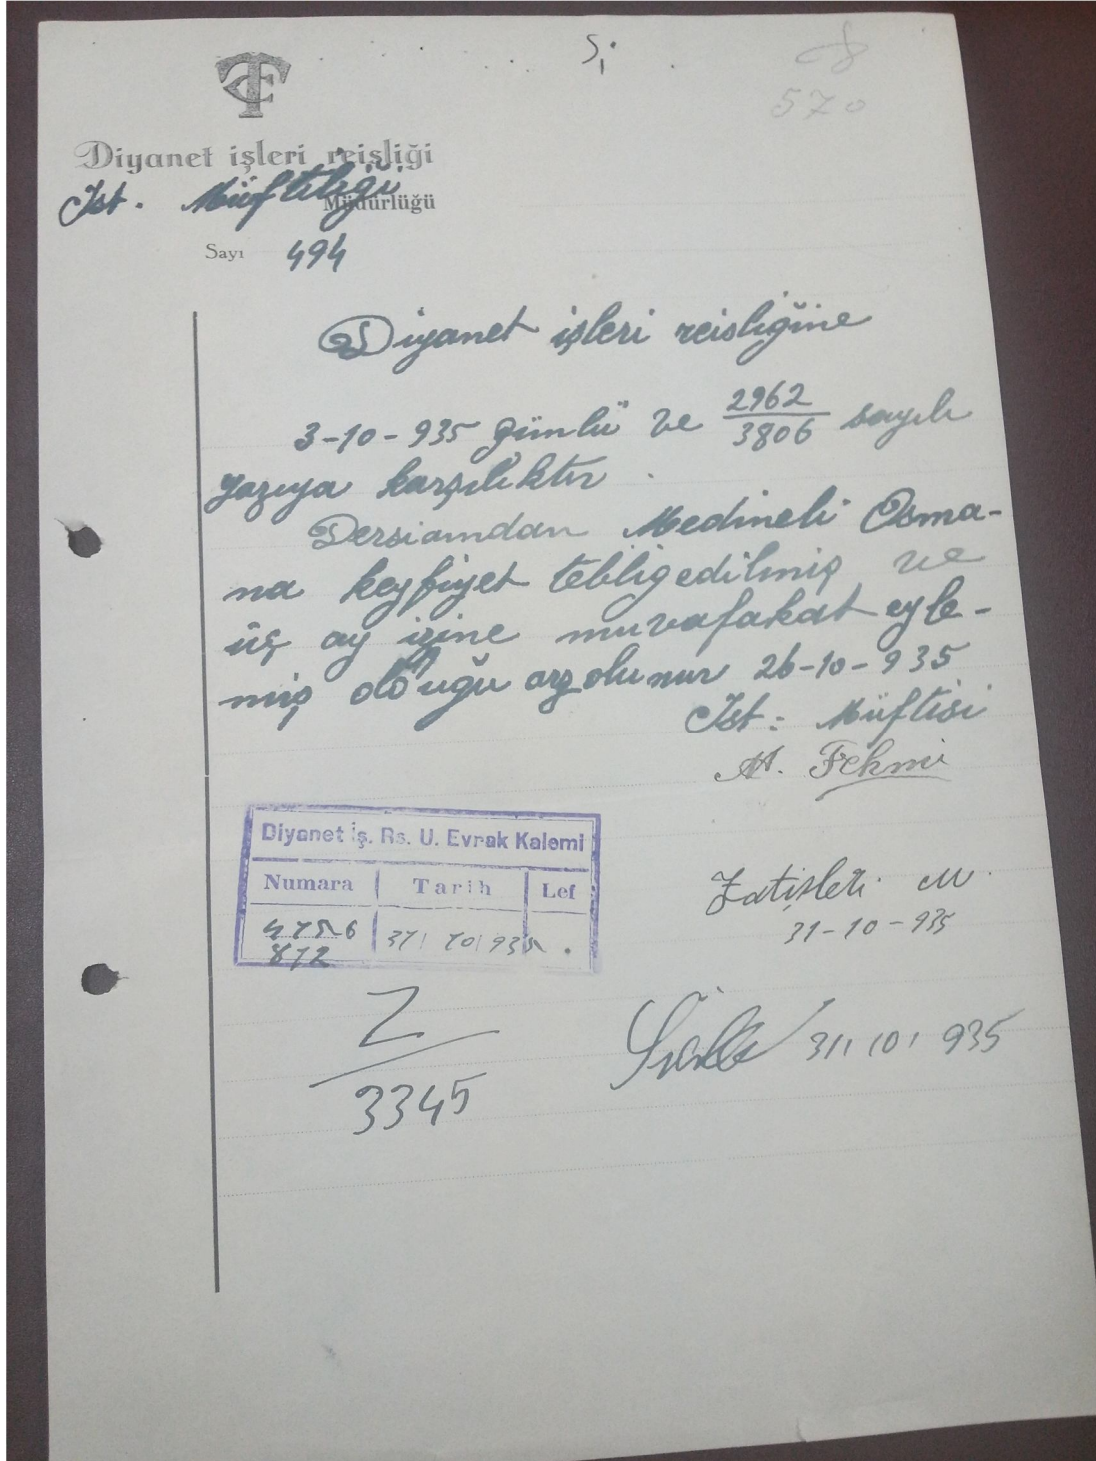 TC
570
Diyanet işleri reisliği
Ist. Müftiliği
Müdürlüğü
Sayı 494
Diyanet işleri reisliğine
3-10-935 günlü ve 2962/3806 sayılı
yazıya karşılıktır.
Dersiamdan Medineli Osma-
na keyfiyet tebliğ edilmiş ve
üç ay izine muvafakat eyle-
miş olduğu arzolunur 26-10-935
Ist: Müftisi
M. Fehmi
Diyanet İş. Rs. U. Evrak Kalemi
Numara Tarih Lef
4756 31/10/935
872
Zatişleri M.
31-10-935
Z
3345
31/10/935